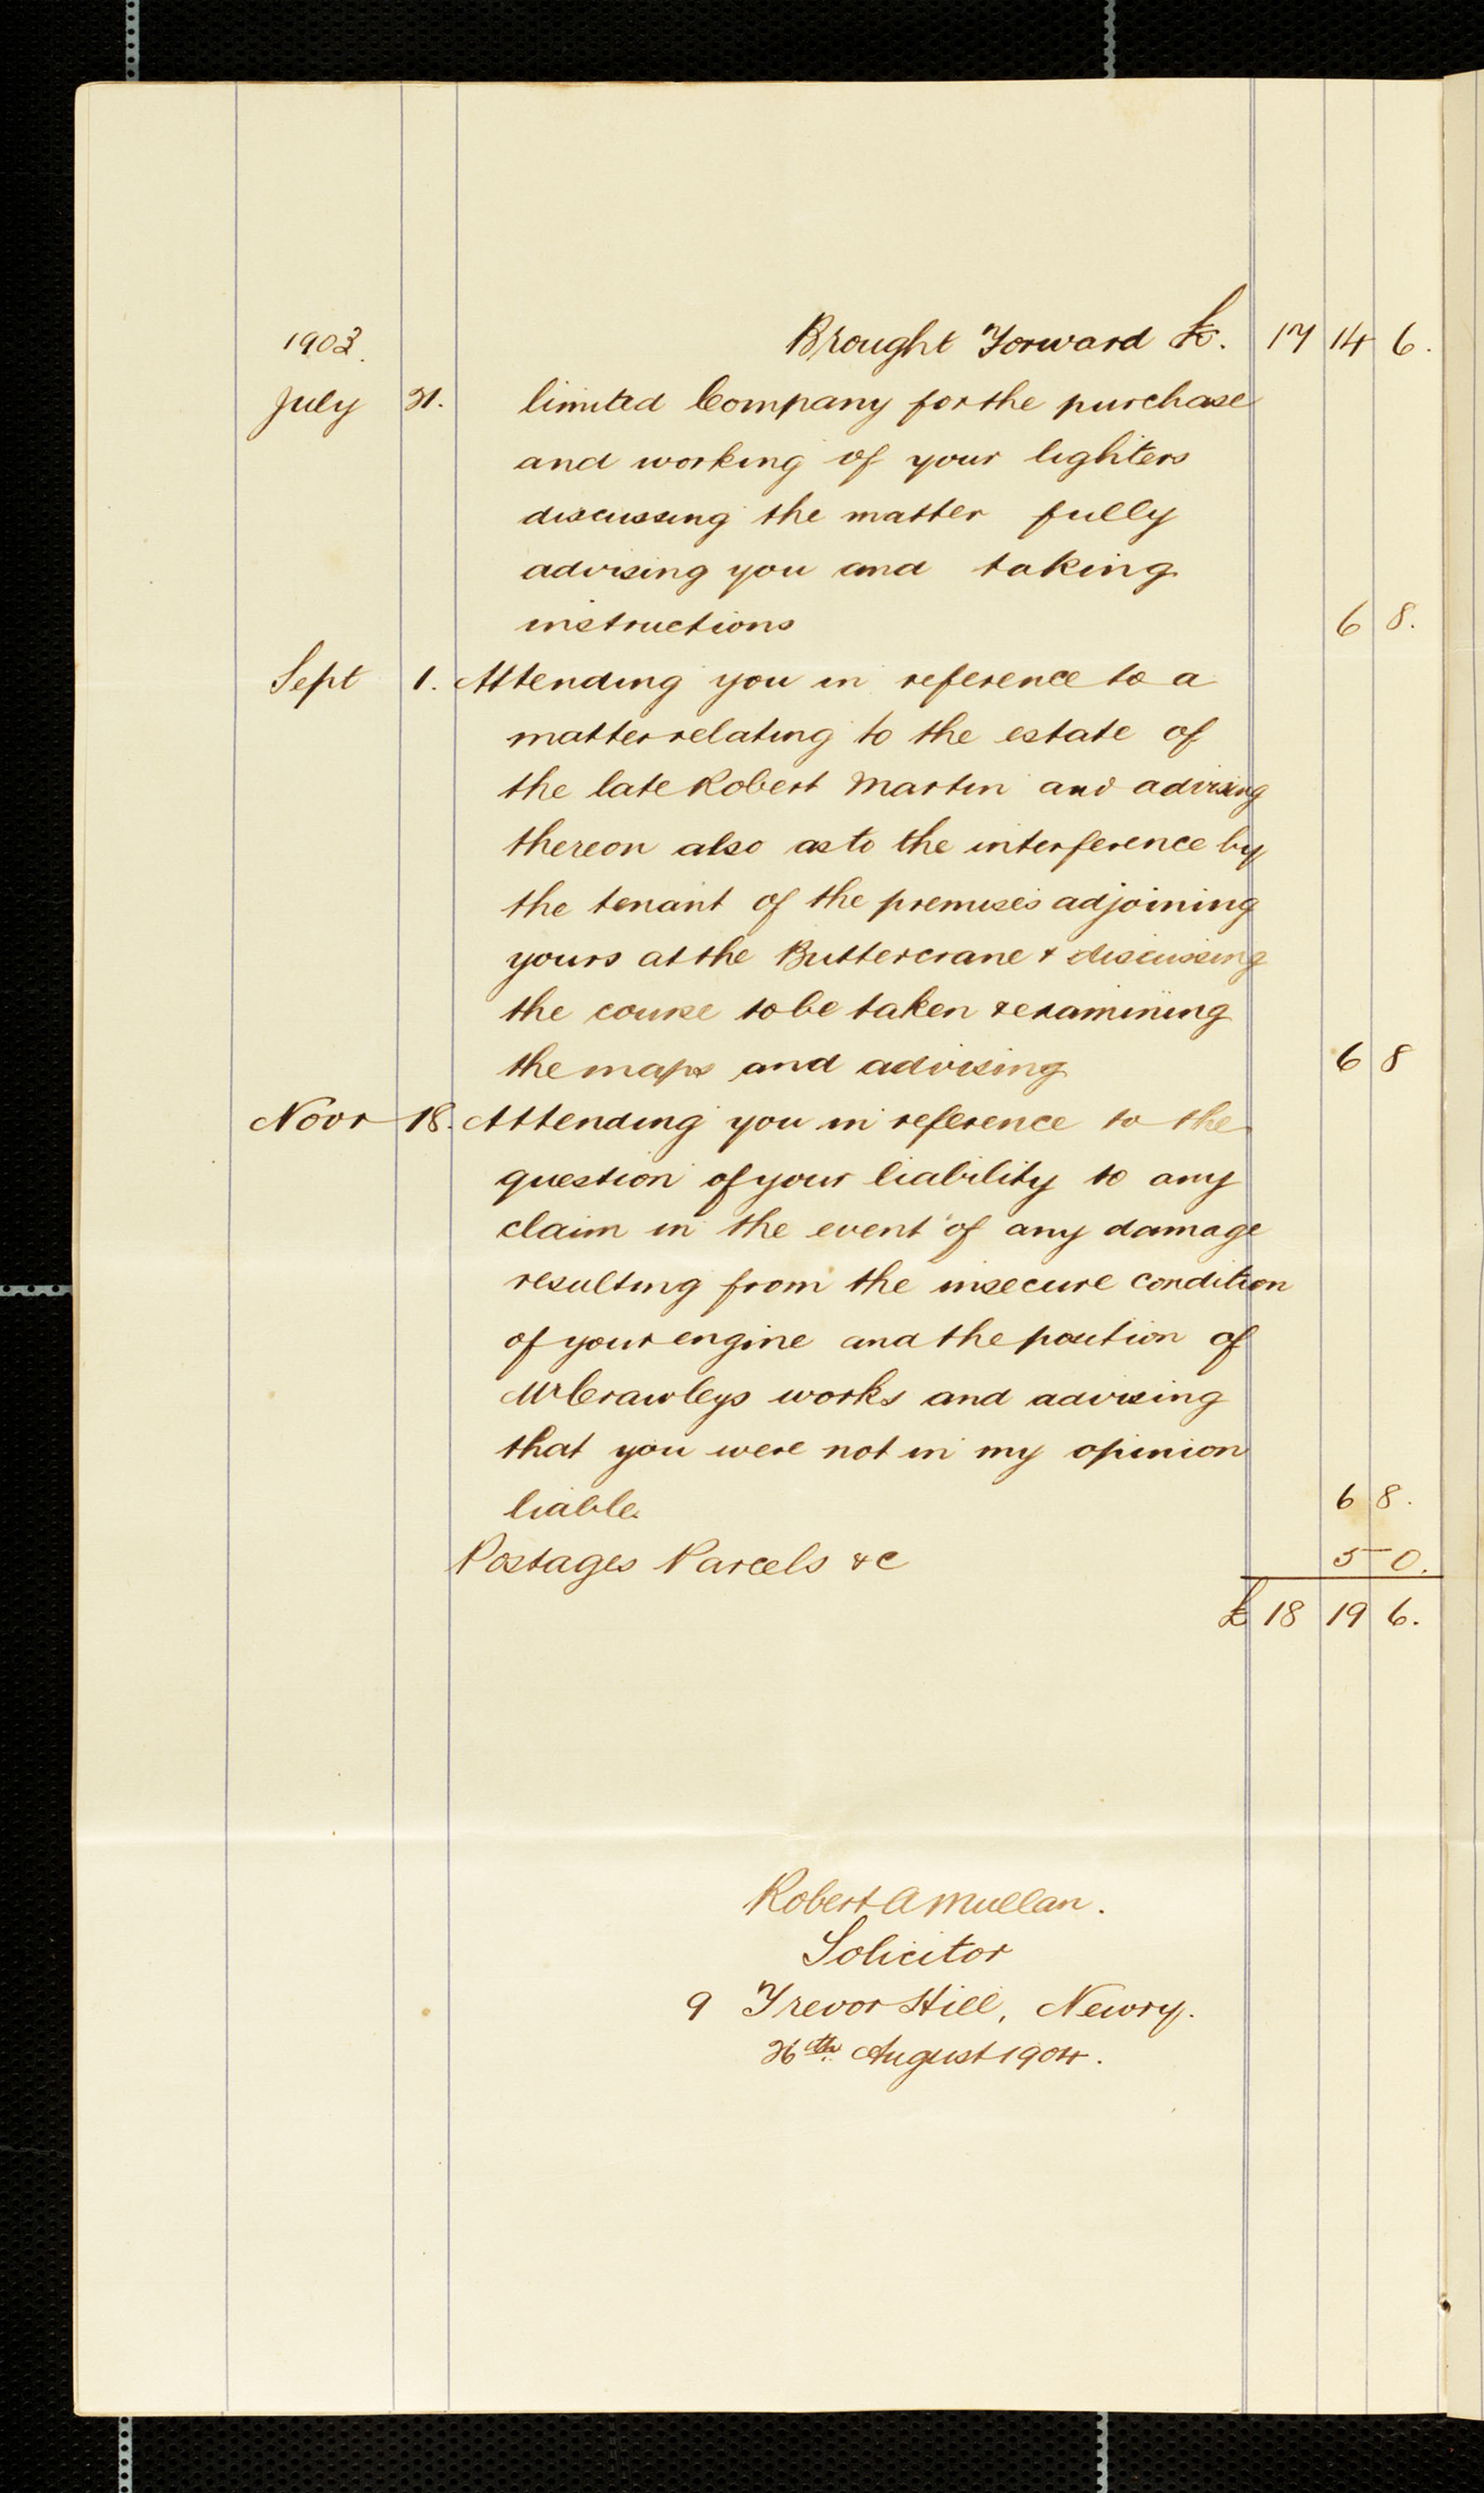 1903. Brought Forward £. 17 14 6.
July 31. limited Company for the purchase
and working of your lighters
discussing the matter fully
advising you and taking
instructions 6 8.
Sept 1. Attending you in reference to a
matter relating to the estate of
the late Robert Martin and advising
thereon also as to the interference by
the tenant of the premises adjoining
yours at the Buttercrane & discussing
the course to be taken & examining
the maps and advising 6 8
Novr 18. Attending you in reference to the
question of your liability to any
claim in the event of any damage
resulting from the insecure condition
of your engine and the position of
Mr Crawleys works and advising
that you were not in my opinion
liable. 6 8.
Postages Parcels &c 5 0.
£ 18 19 6.
Robert A Mullan.
Solicitor
9 Trevor Hill, Newry.
26th August 1904.